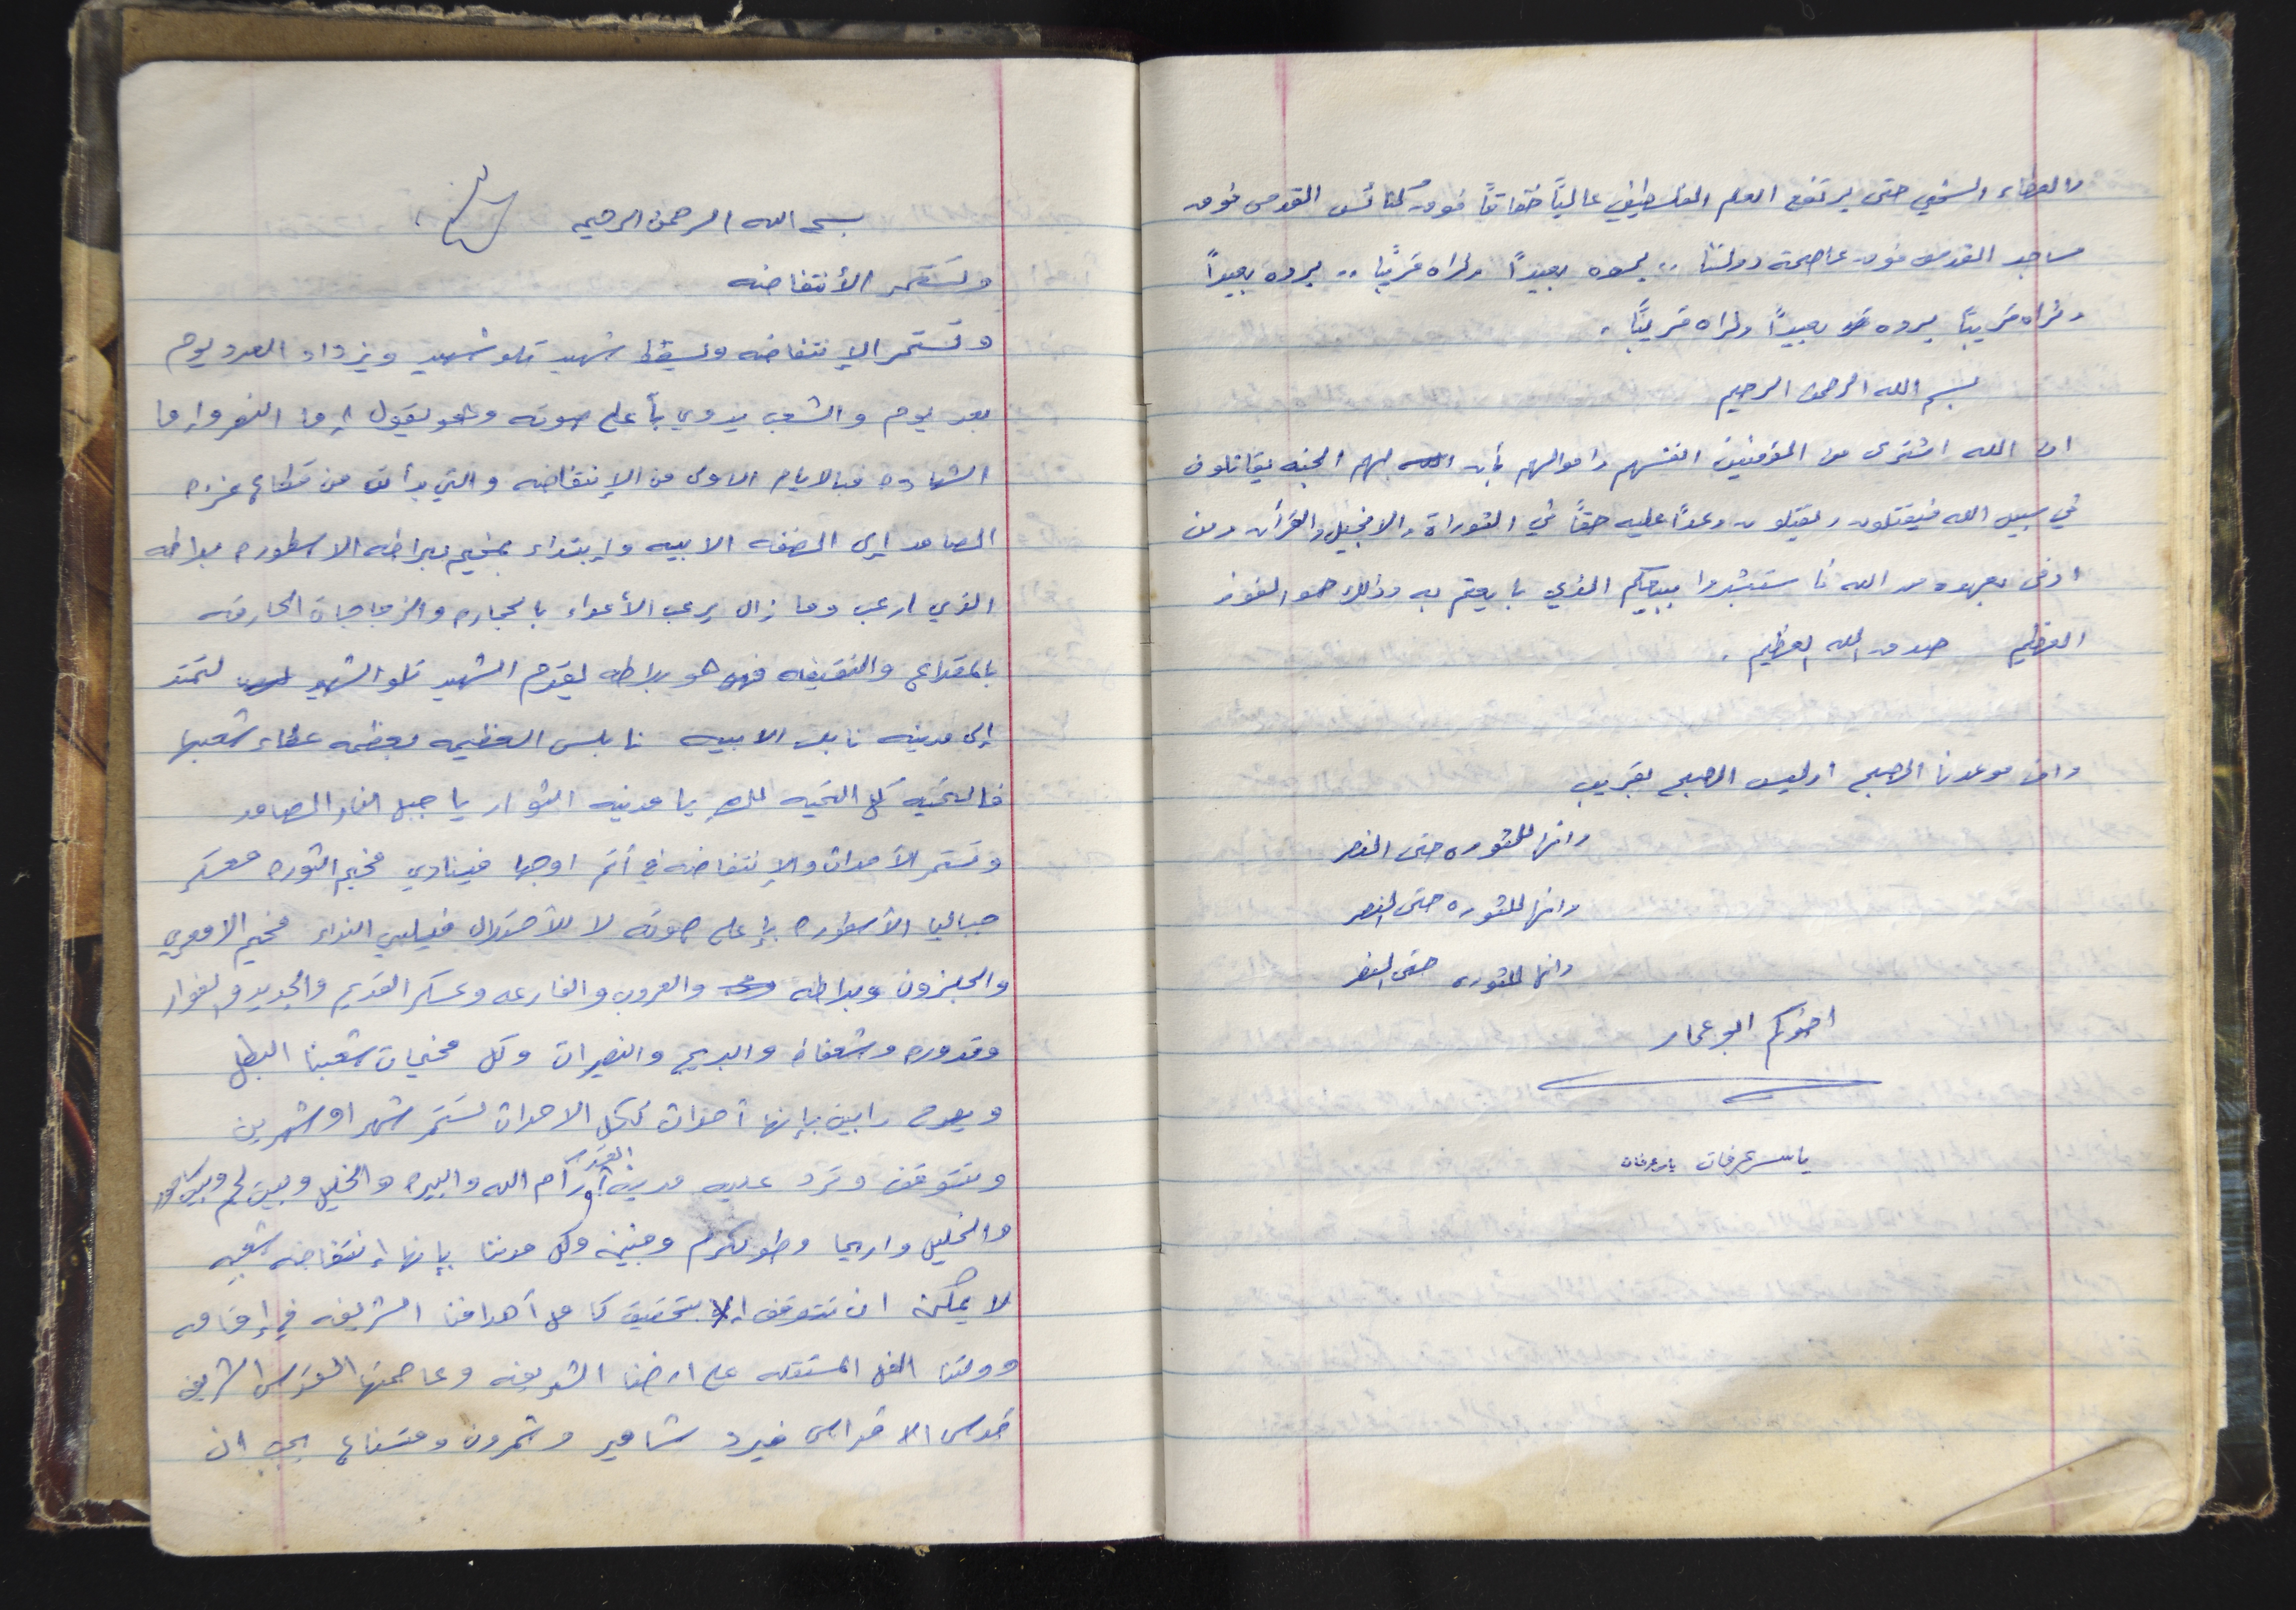 والعطاء السخي حتى يرتفع العلم الفلسطيني عالياً خفاقاً فوق كنائس القدس فوق
مساجد القدس فوق عاصمة دولتنا .. يرونه بعيداً ونراه قريباً .. يروه بعيداً
ونراه قريباً يروه بعيداً ونراه قريباً .
بسم الله الرحمن الرحيم
ان الله اشترى من المؤمنين انفسهم واموالهم بأن لهم الجنه يقاتلون
في سبيل الله فيقتلون ويقتلون وعداً عليه حقاً في التوراة والانجيل والقرأن ومن
اوفى بعهده من الله فاستبشروا ببيعكم الذي بايعتم به وذلك هو الفوز
العظيم صدق الله العظيم .
وان موعدنا الصبح اوليس الصبح بقريب
وانها للثوره حتى النصر
وانها للثوره حتى النصر
وانها للثوره حتى النصر
اخوكم ابو عمار
ياسر عرفات ياسر عرفات
بسم الله الرحمن الرحيم
وتستمر الأنتفاضه
وتستمر الإنتفاضه ويسقط شهيد تلو شهيد ويزداد العدد يوم
بعد يوم والشعب يدوي بأعلى صوته وهو يقول إما النصر وإما
الشهاده فبالايام الاولى من الإنتفاضه والتي بدأت من قطاع غزه
الصامد إلى الضفه الابيه وإبتداء بمخيم بلاطه الاسطوره بلاطه
الذي ارعب وما زال يرعب الأعداء بالحجاره والزجاجات الحارقه
بالمقلاع والنقيفه فها هو بلاطه يقدم الشهيد تلو الشهيد لتمتد
إلى مدينه نابلس الابيه نابلس العظيمه بعظمه عطاء شعبها
فالتحيه كل التحيه لك يا مدينه الثوار يا جبل النار الصامد
وتستمر الأحداث والإنتفاضه في أتم اوجها فينادي مخيم الثوره معسكر
جباليا الأسطوره بإعلى صوته لا للأحتلال فيلبي النداء مخيم الامعري
والجلزون وبلاطه والعروب والفارعه وعسكر القديم والجديد والفوار
وقدوره وشعفاط والبريج والنصيرات وكل مخيمات شعبنا البطل
ويصرح رابين بإنها أحداث ككل الاحداث تستمر شهر او شهرين
وتتوقف وترد عليه مدينة القدس ورام الله والبيره والخليل وبيت لحم وبيت ساحور
والخليل واريحا وطولكرم وجنين وكل مدننا بإنها إنتفاضه شعبيه
لا يمكن ان تتوقف إلا بتحقيق كامل أهدافنا الشريفه في إقامه
دولتنا المستقله على ارضنا الشريفه وعاصمتها القدس الشريف
قدس الاقداس فيرد شامير وشمرون ومتسناع يجب ان